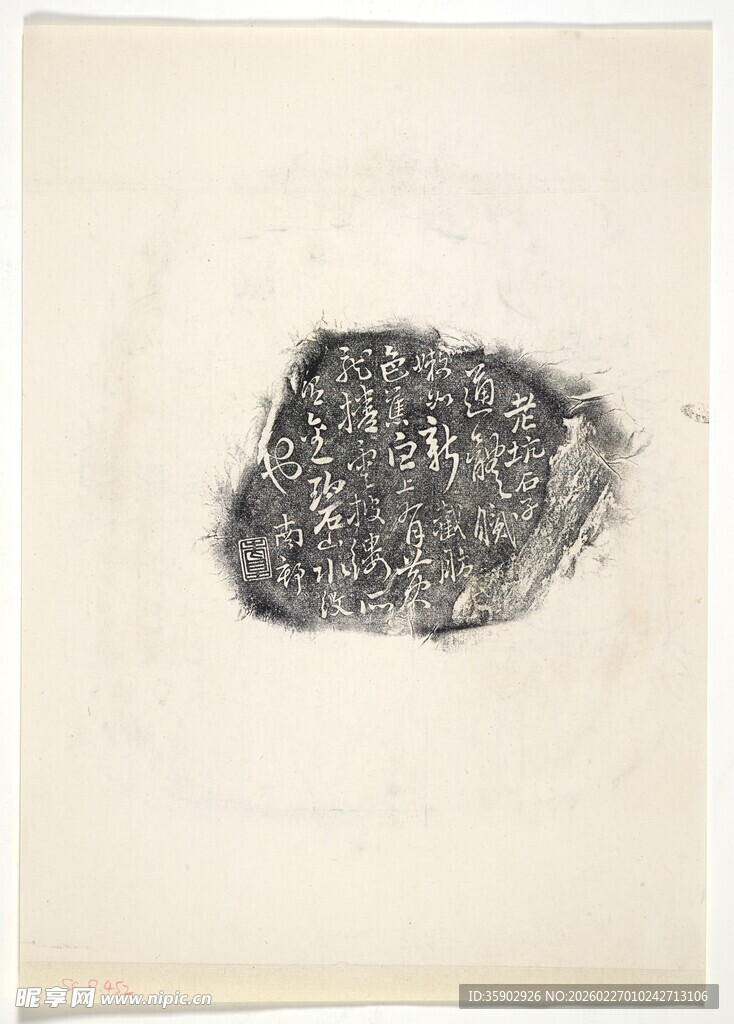 老坑石子
通體膩
嫩如新截肪
色蕉白上有黃
龍捲雲披縷
金碧山水
也
南邨
Sc.P.452
昵享网 www.nipic.cn
ID:35902926 NO:20260227010242713106